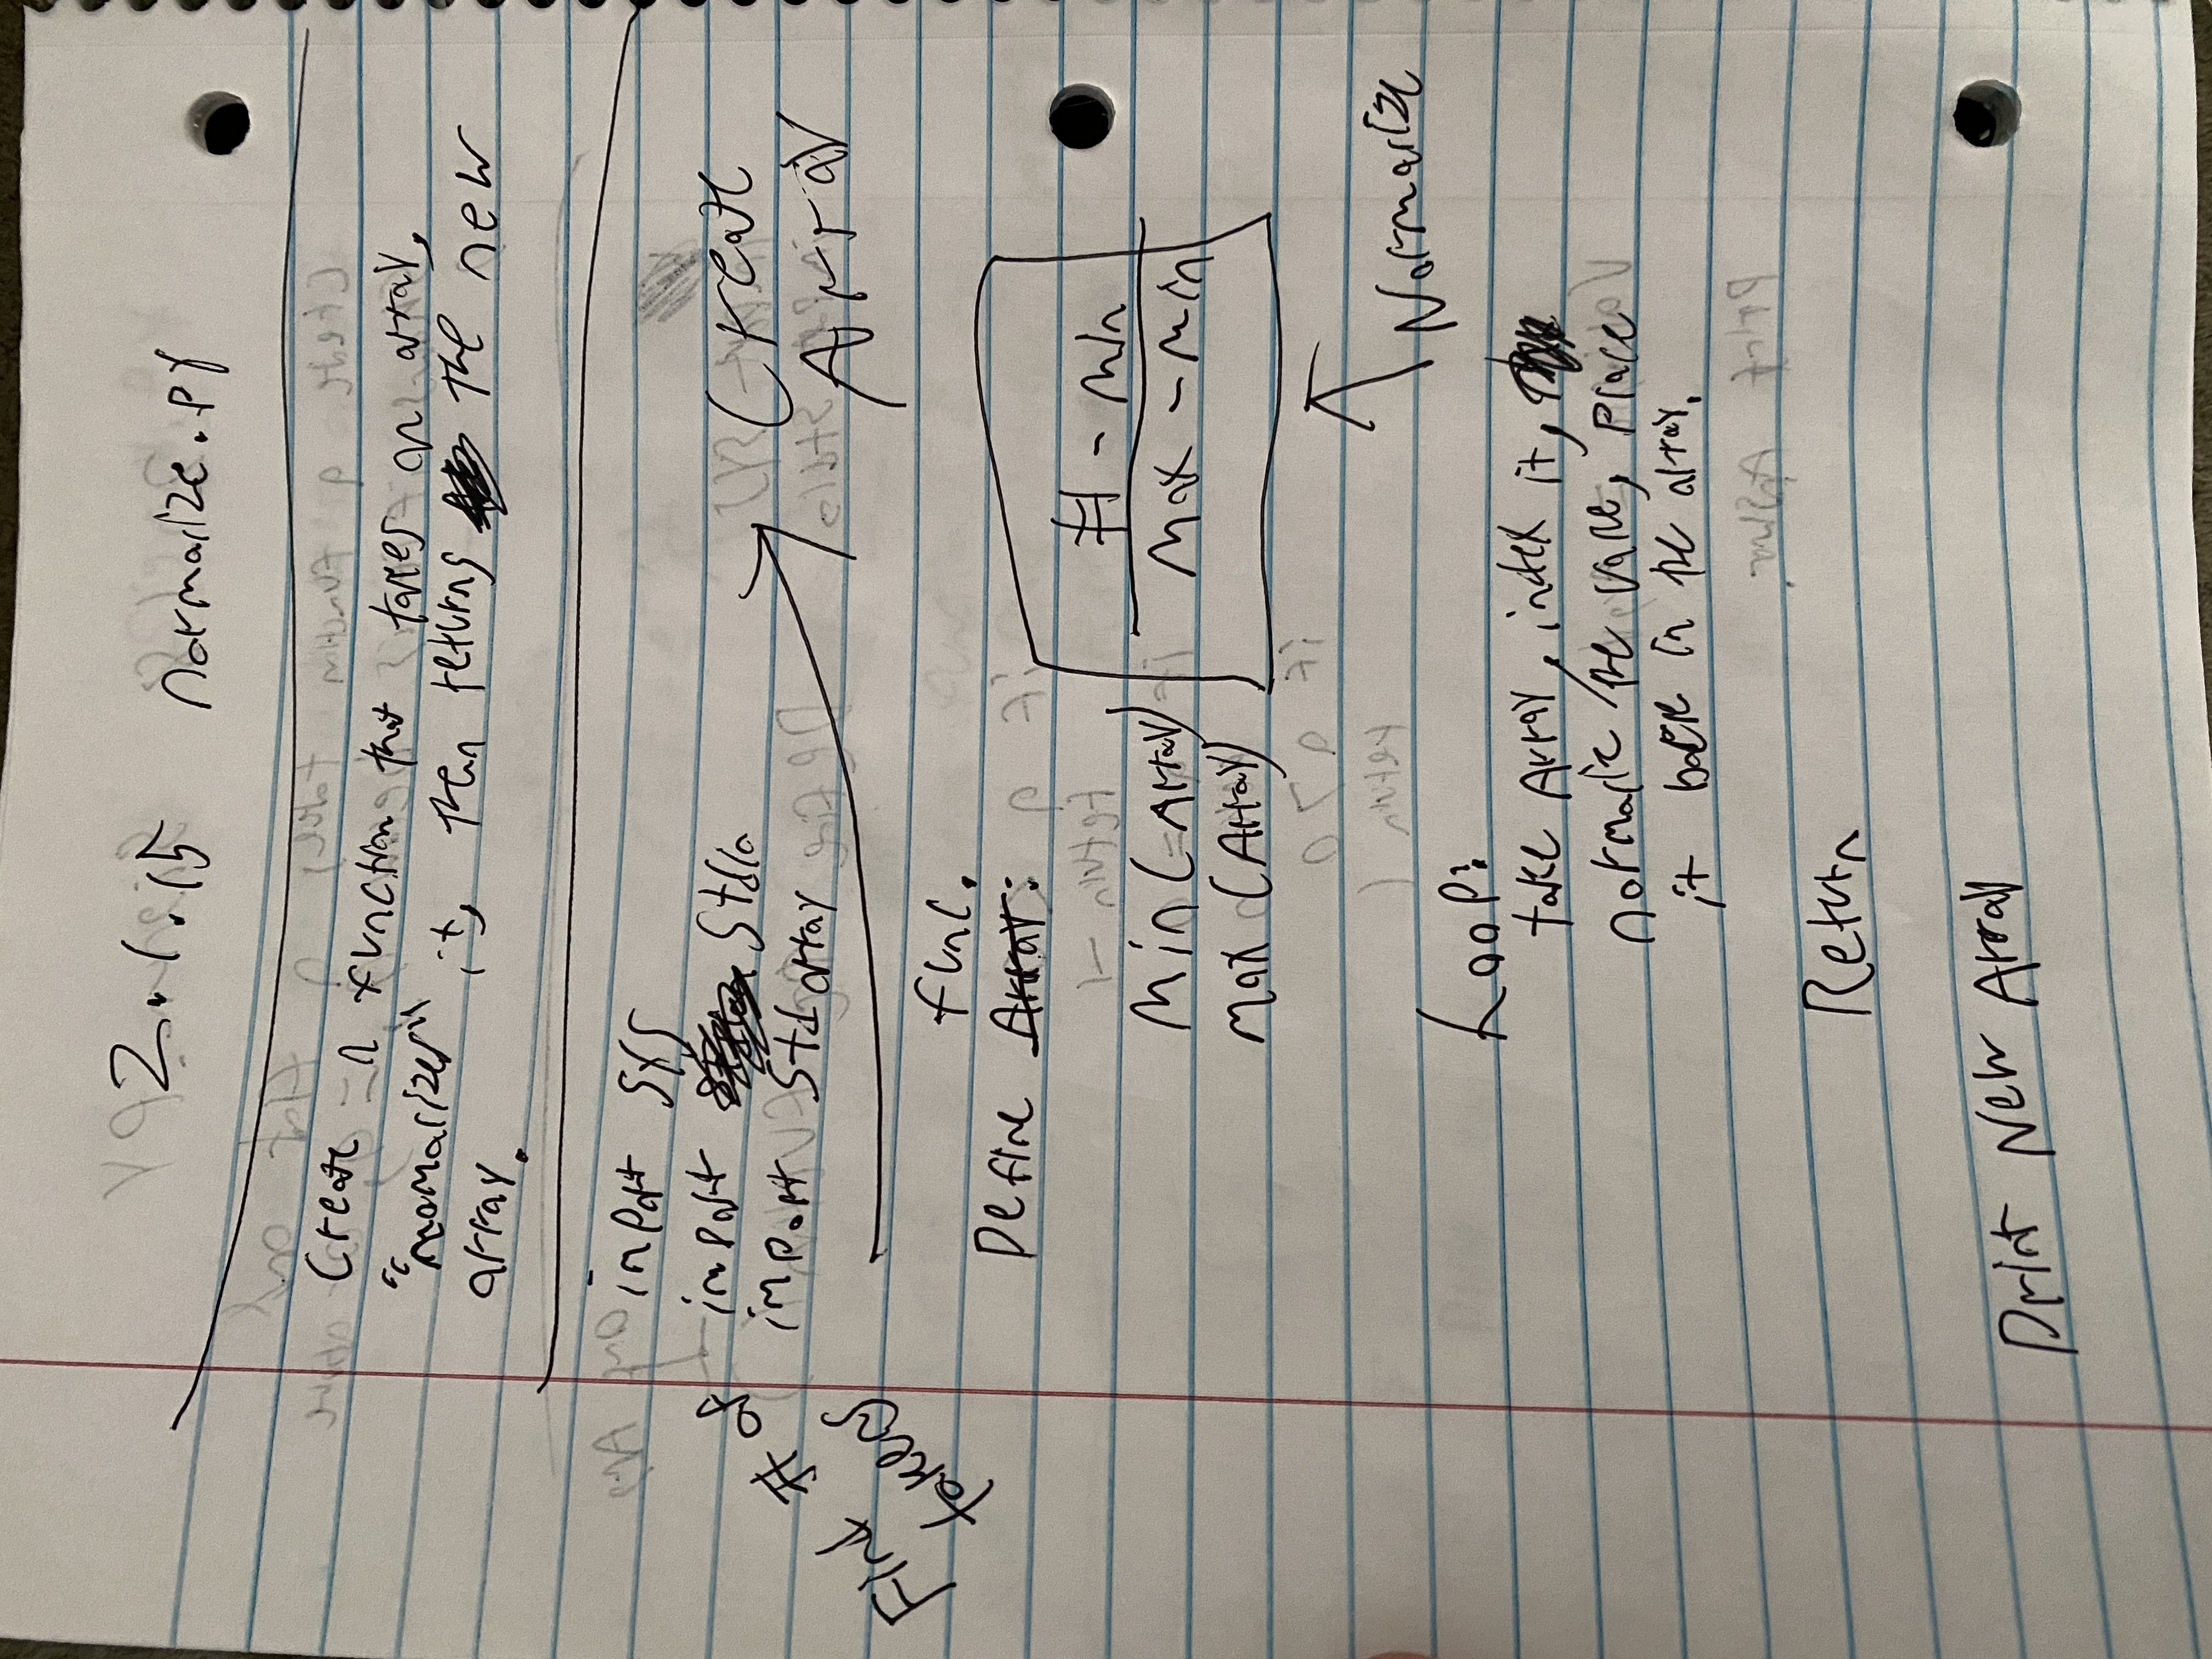 2.1.15 normalize.py
Create a function that takes an array,
"normalizes" it, then returns the new
array.
import sys
import stdio
import stdarray
Create
Array
Find # of
tokens
func.
Define Array:
# - min
max - min
Min (Array)
max (Array)
Normalize
Loop:
take Array, index it,
normalize the value, place
it back in the array.
Return
Print New Array